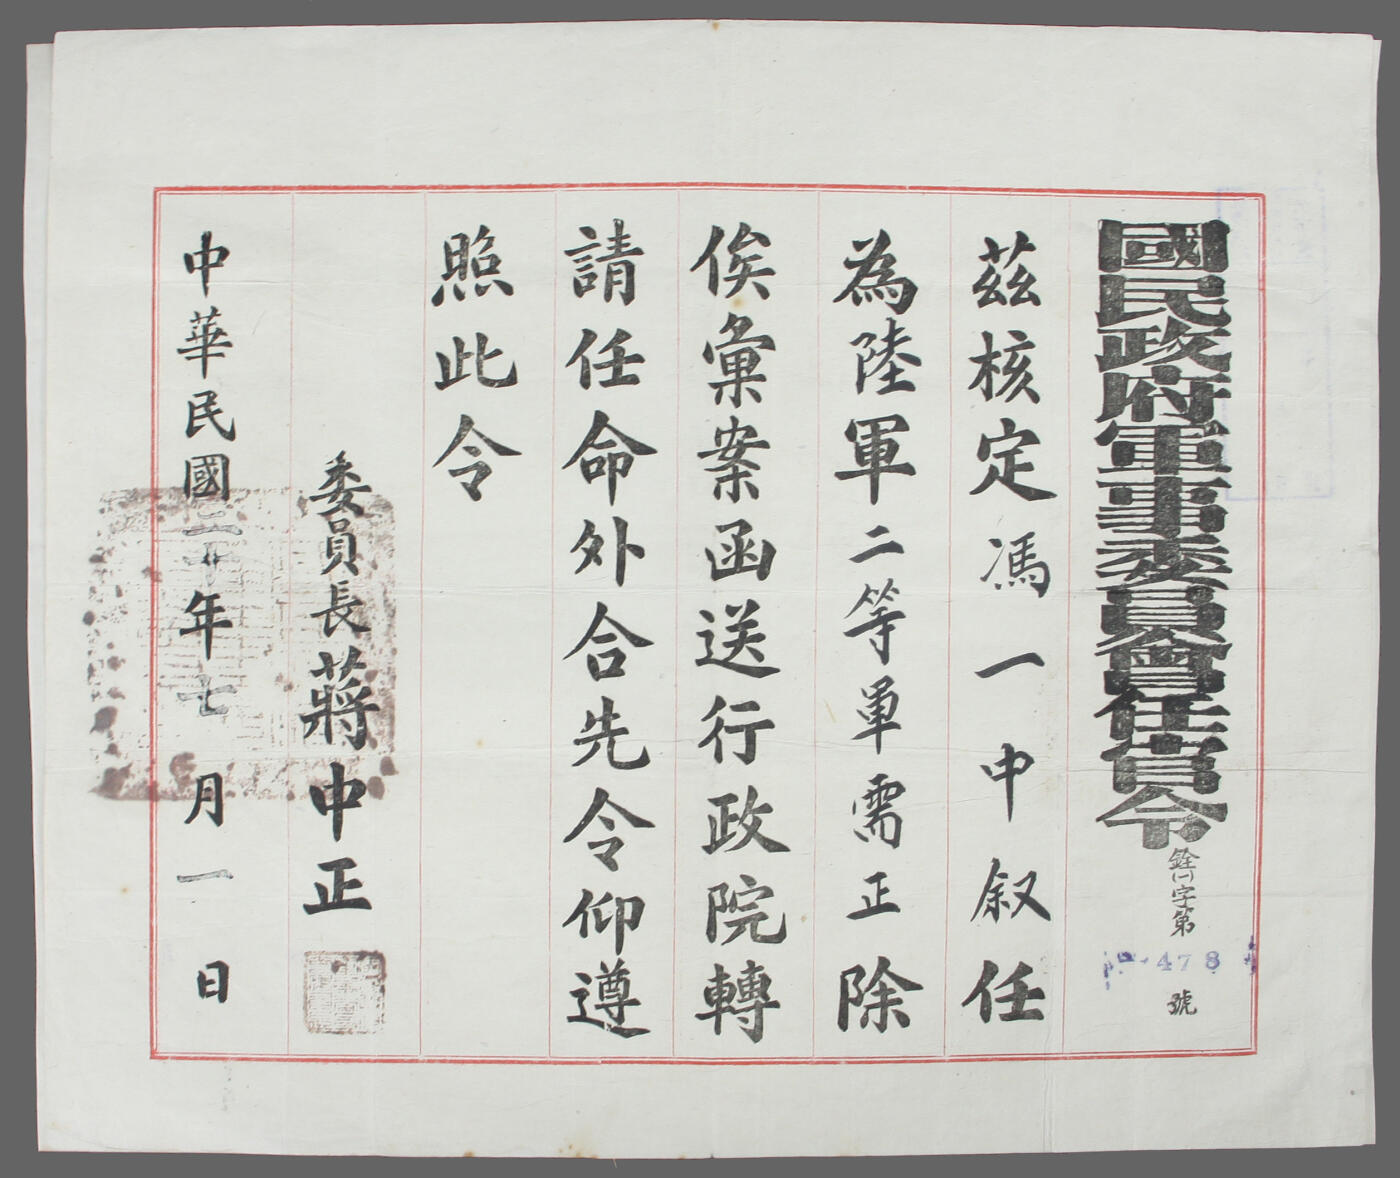 國民政府軍事委員會任官令
銓㈠字第478號
茲核定馮一中叙任
為陸軍二等軍需正除
俟彙案函送行政院轉
請任命外合先令仰遵
照此令
委員長蔣中正
中華民國三十年七月一日